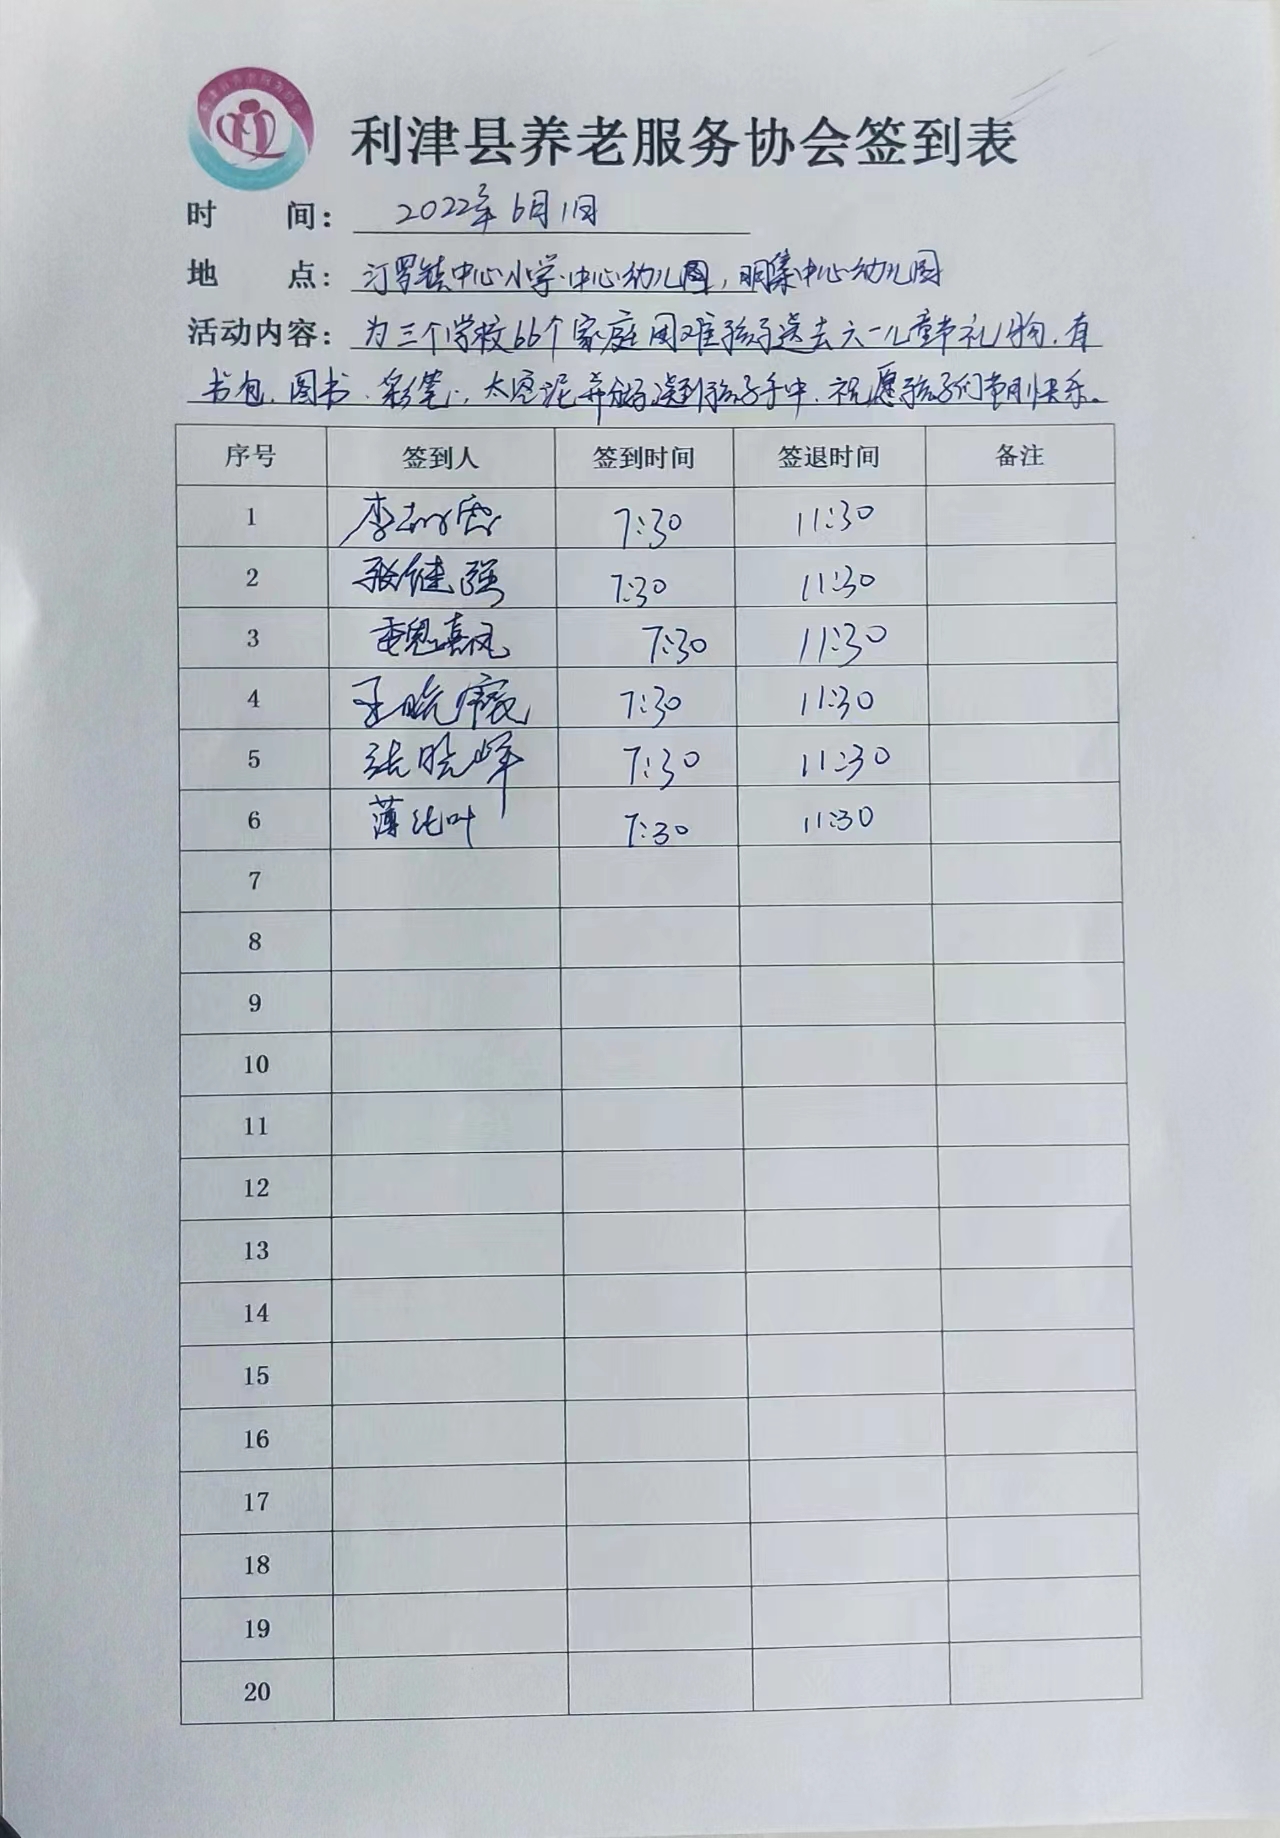 利津县养老服务协会签到表
时 间: 2022年6月1日
地 点: 汀罗镇中心小学.中心幼儿园,明集中心幼儿园
活动内容: 为三个学校66个家庭困难孩子送去六一儿童节礼物.有
书包.图书.彩笔.太空泥 到孩子手中.祝愿孩子们节日快乐。
序号 签到人 签到时间 签退时间 备注
1 李 7:30 11:30
2 张健强 7:30 11:30
3 魏喜凤 7:30 11:30
4 王晓薇 7:30 11:30
5 张晓峰 7:30 11:30
6 薄纯叶 7:30 11:30
7
8
9
10
11
12
13
14
15
16
17
18
19
20